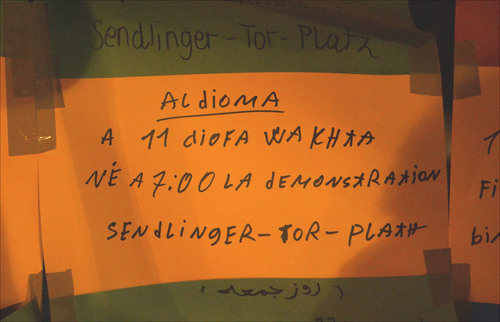 Sendlinger-Tor-Platz
ALdiOMA
A 11 diOFA WAKHtA
NÉ A 7:00 LA dEMONStRAtiON
SENdLiNGER-TOR-PLAtH
(روز جمعه)
Fi
bin